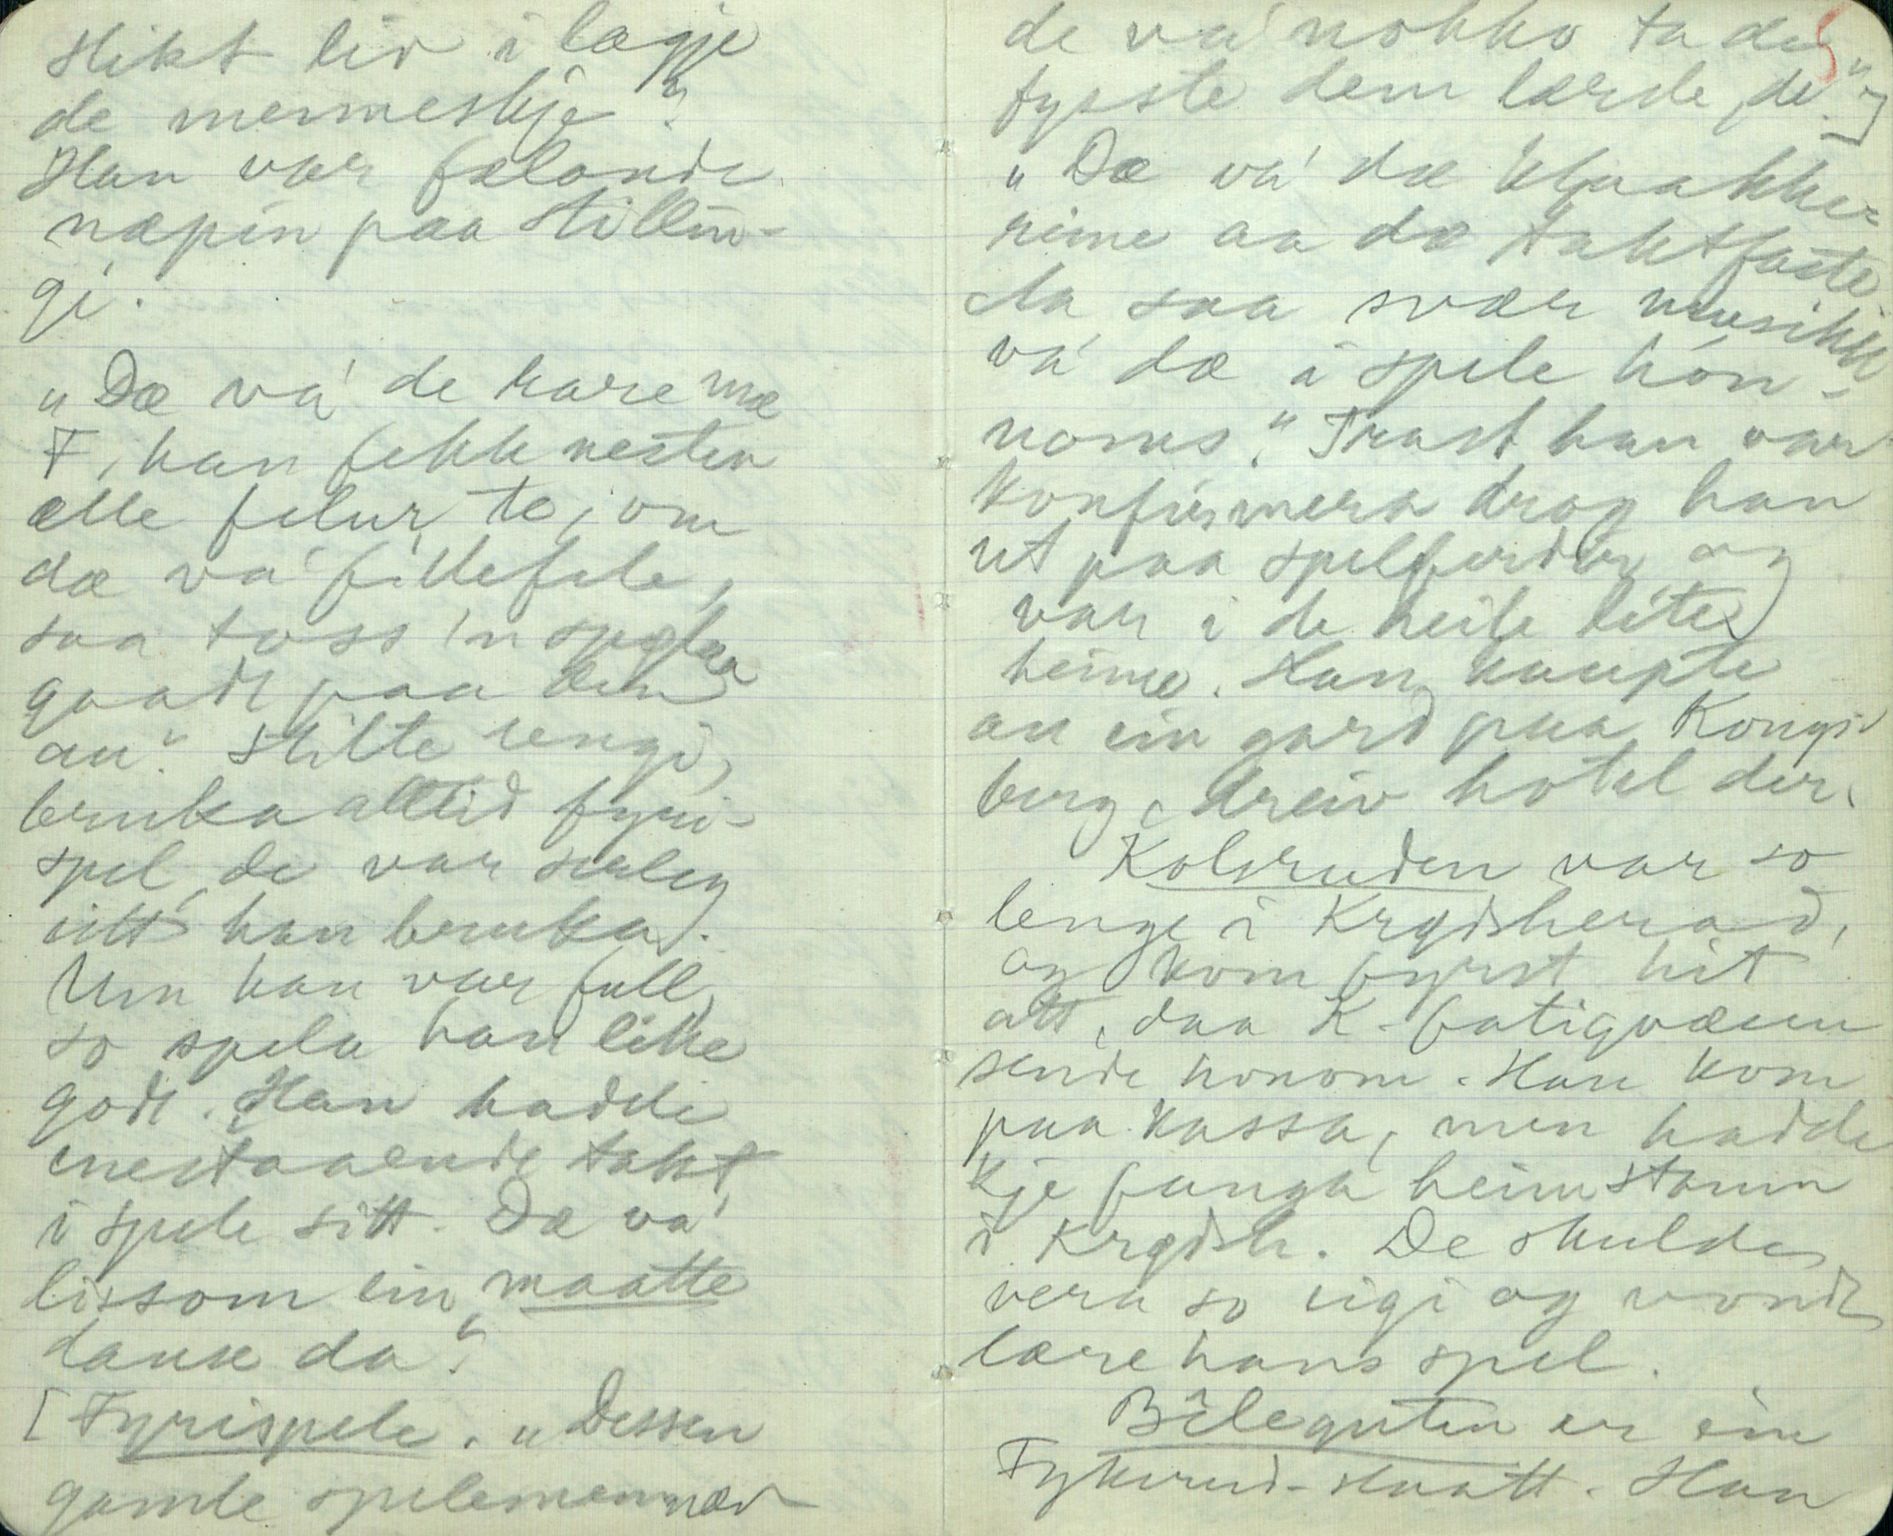 slikt liv i lægje
de menneskje"?
Han var fælande
næpin paa stillin-
gi.
"Dæ vá de rare mæ
F, han fekk nesten
alle felur te, om
dæ vá fillefele,
saa toss 'n spela
goadt paa den
au". Stilte lengi,
bruka alltid fyri-
spel, de var serleg
eitt han bruka.
Um han var full,
so spela han like
godt. "Han hadde
enestaaende takt
i spele sitt. Dæ va'
lissom ein maatte
danse da".
[Fyrispele. "Dessen
gamle spelemennær
de va' nokko ta de
fysste dem lærde, de".]
"Dæ vá dæ klaakke-
reine aa dæ taktfaste.
Aa saa svær musikk
vá dæ i spele hón-
noms". Trast han var
konfirmera drog han
ut paa spelferder og
var i de heile lite
heime. Han kaupte
au ein gard paa Kongs-
berg, dreiv hotel der.
Kolsruden var so
lenge i Krødsherad,
og kom fyrst hit
att, daa K-fatigvæsen
sende honom. Han kom
paa kassa, men hadde
kje fungje heimstamn
i Krødsh. De skulde
vera so eigi og vondt
lære hans spel.
Bileguten er ein
Fykerud-slaatt. Han